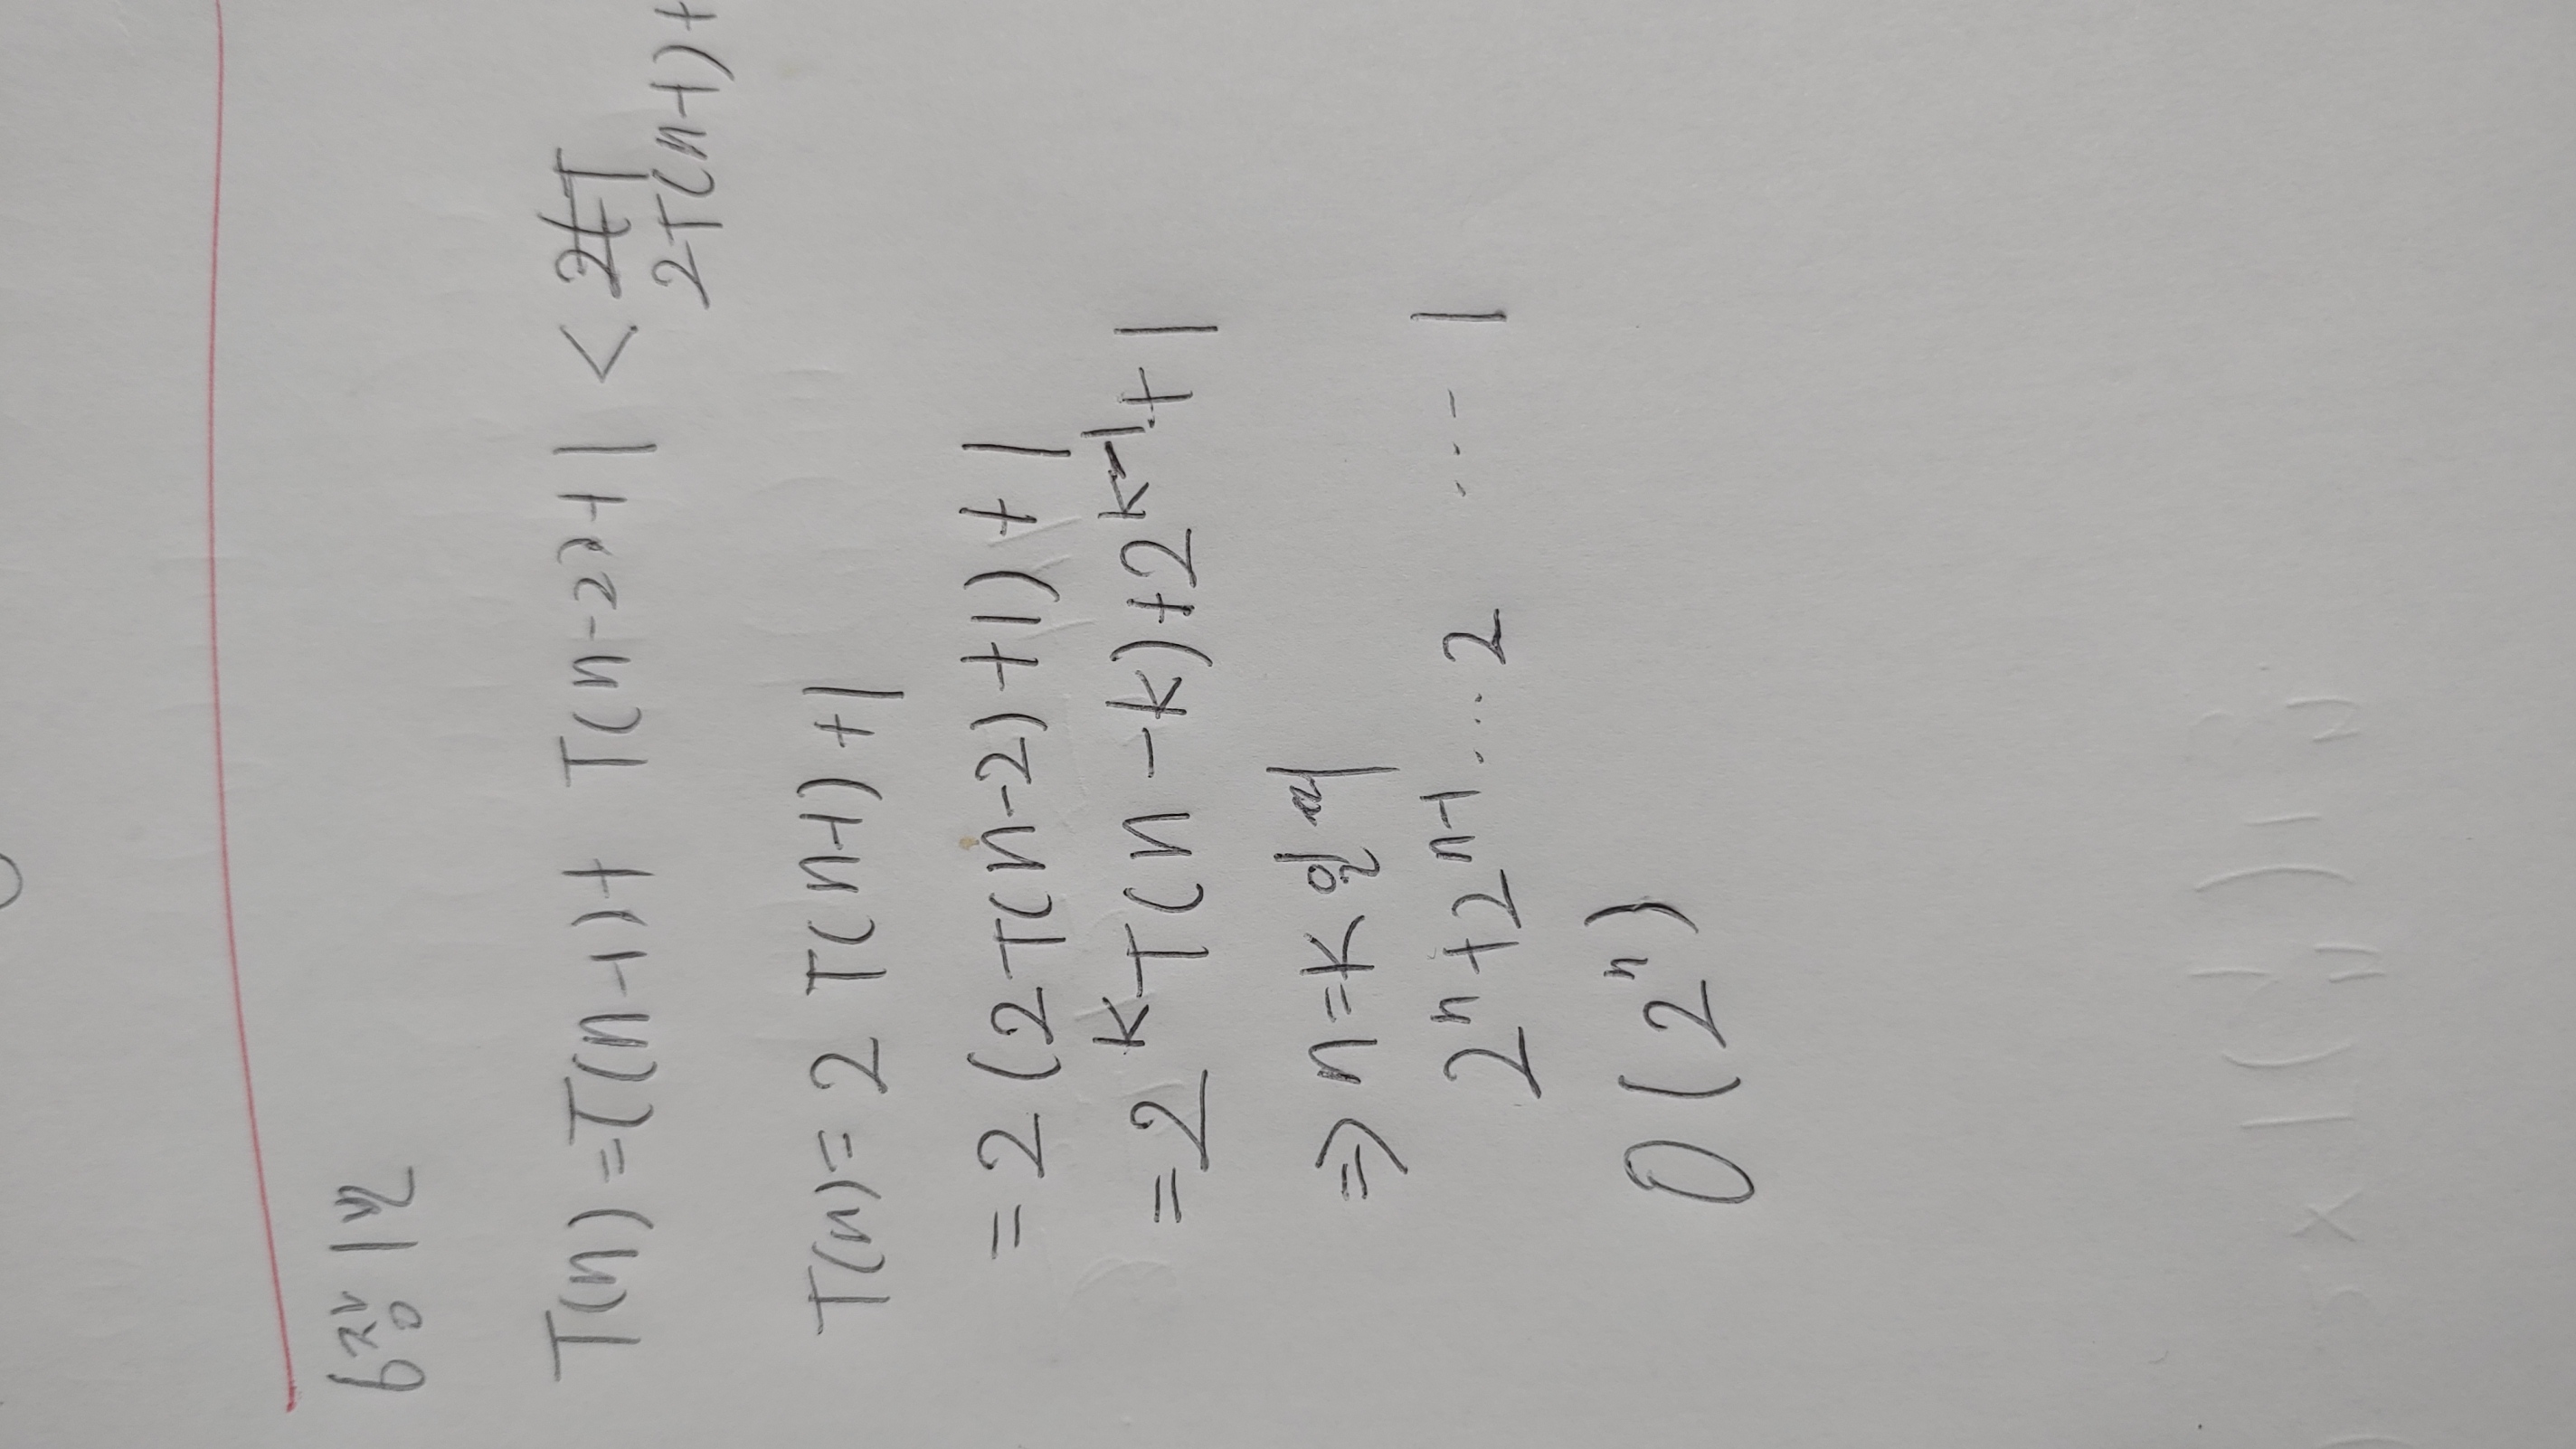 6장 1번
T(n)=T(n-1)+ T(n-2)+1 <
2T(n-1)+
T(n)= 2 T(n-1)+1
=2(2T(n-2)+1)+1
=2^k T(n-k)+2^k-1+1
⇒ n=k 일 때
2^n+2^n-1...2 ... 1
O(2^n)